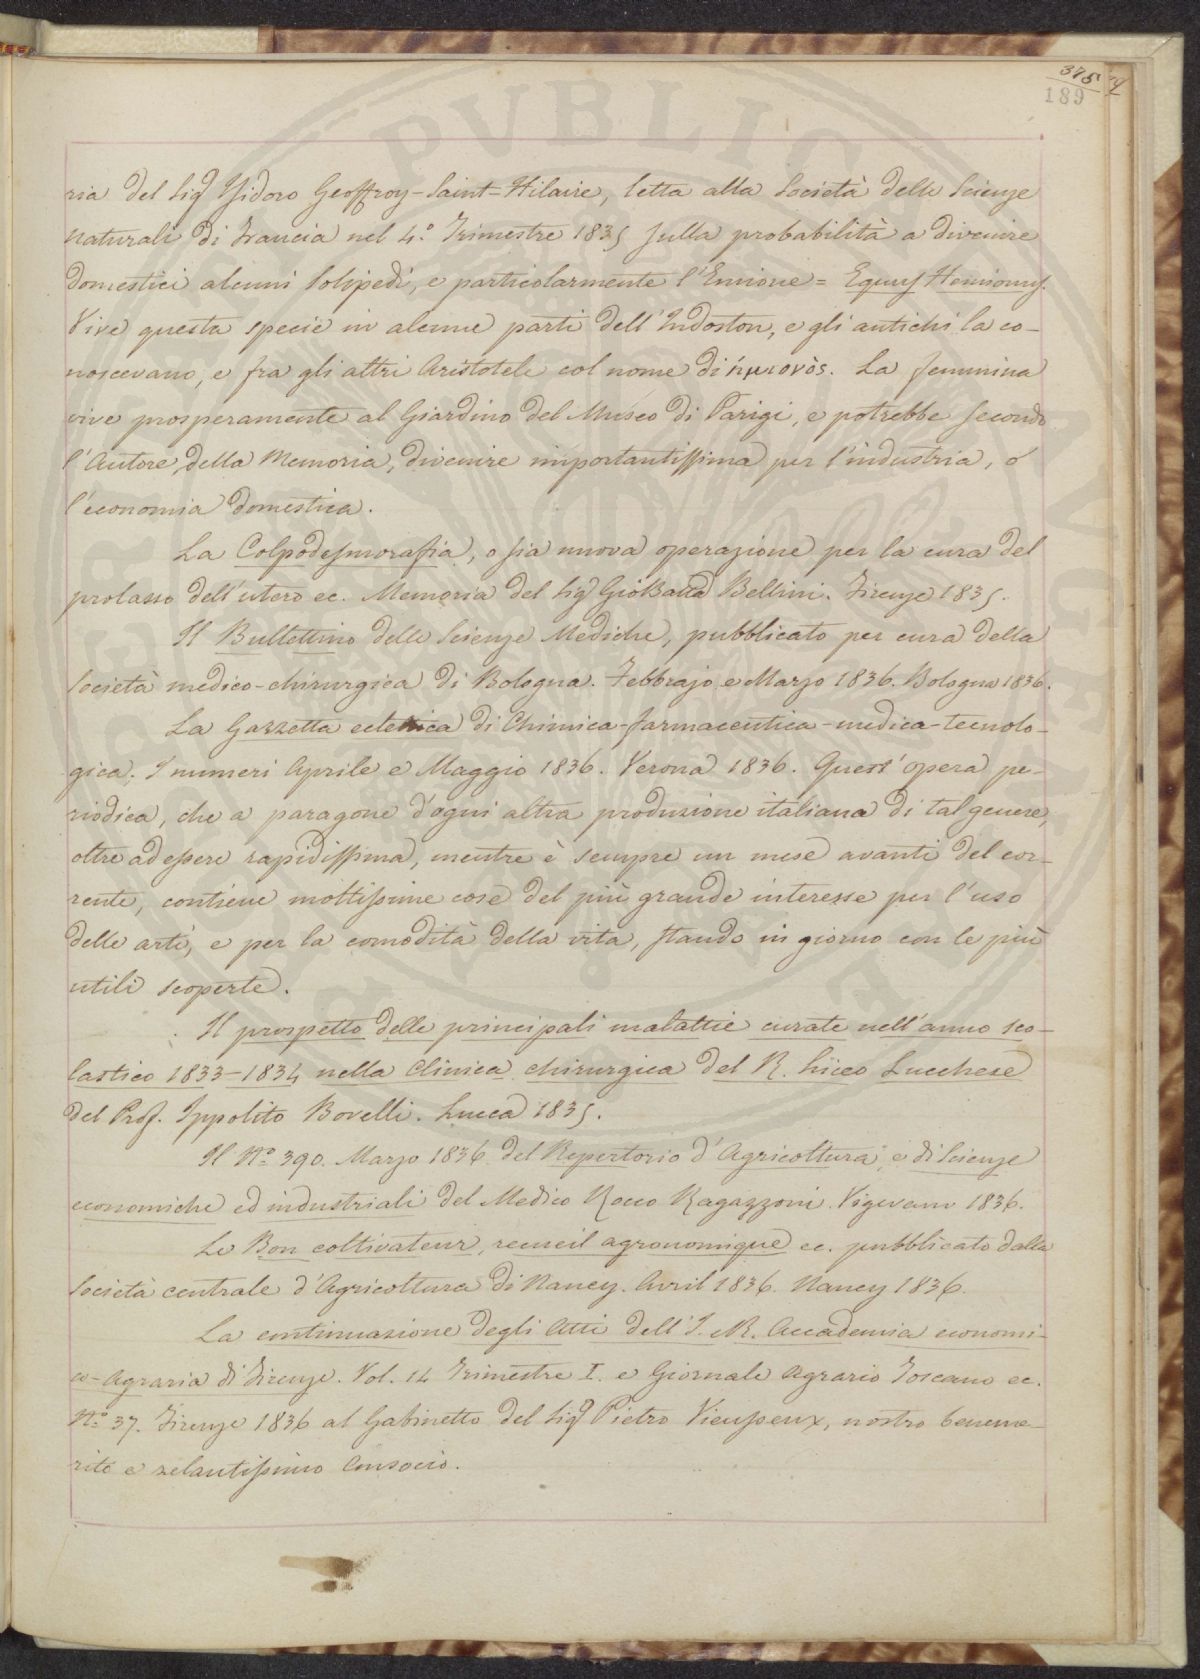 375
189
ria del Sig.r Isidoro Geoffroy-Saint-Hilaire, letta alla Società delle Scienze
naturali di Francia nel 4.° Trimestre 1835 sulla probabilità a divenire
domestici alcuni solipedi, e particolarmente l'Emione = Equus Hemionus.
Vive questa specie in alcune parti dell'Indoston, e gli antichi la co-
noscevano, e fra gli altri Aristotele col nome di ἡμιονός. La femmina
vive prosperamente al Giardino del Museo di Parigi, e potrebbe secondo
l'Autore, della Memoria, divenire importantissima per l'industria, o
l'economia domestica.
La Colpodesmorafia, o sia nuova operazione per la cura del
prolasso dell'utero ec. Memoria del Sig.r Gio Batta Bellini. Firenze 1835.
Il Bullettino delle Scienze Mediche, pubblicato per cura della
Società medico-chirurgica di Bologna. Febbrajo e Marzo 1836. Bologna 1836.
La Gazzetta ecletica di Chimica-farmaceutica-medica-tecnolo-
gica; I numeri Aprile e Maggio 1836. Verona 1836. Quest'opera pe-
riodica, che a paragone d'ogni altra produzione italiana di tal genere,
oltre ad essere rapidissima, mentre è sempre un mese avanti del cor-
rente, contiene moltissime cose del più grande interesse per l'uso
delle arti, e per la comodità della vita, stando in giorno con le più
utili scoperte.
Il prospetto delle principali malattie curate nell'anno sco-
lastico 1833-1834 nella Clinica chirurgica del R. Liceo Lucchese
del Prof. Ippolito Borelli. Lucca 1835.
Il N.° 390. Marzo 1836 del Repertorio d'Agricoltura, e di Scienze
economiche ed industriali del Medico Rocco Ragazzoni. Vigevano 1836.
Le Bon coltivateur, recueil agronomique ec. pubblicato dalla
Società centrale d'Agricoltura di Nancy. Avril 1836. Nancy 1836.
La continuazione degli Atti dell'I. e R. Accademia economi-
co-Agraria di Firenze. Vol. 14 Trimestre I. e Giornale Agrario Toscano ec.
N.° 37. Firenze 1836 al Gabinetto del Sig.r Pietro Vieusseux, nostro beneme-
rito e zelantissimo Consocio.